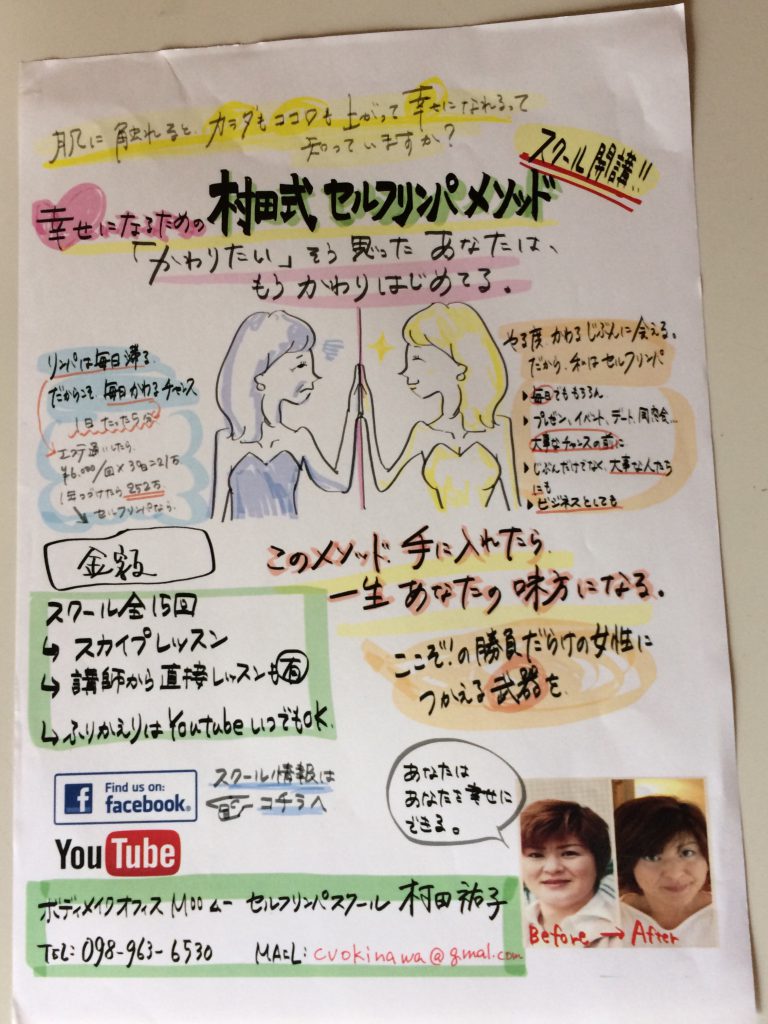 肌に触れると、カラダもココロも上がって幸せになれるって
知っていますか?
スクール開講!!
幸せになるための 村田式 セルフリンパ メソッド
「かわりたい」そう思った あなたは、
もう かわりはじめてる。
リンパは毎日滞る。
だからこそ 毎日かわるチャンス
1日 たった5分
エステ通いしたら
¥6,000/回×
1年つづけたら 252万
セルフリンパなら、
やる度、かわる じぶんに会える。
だから、私はセルフリンパ
▶毎日でももちろん
▶プレゼン、イベント、デート、同窓会…
大事なチャンスの前に
▶じぶんだけでなく、大事な人たち
にも
▶ビジネスとしても
このメソッド 手に入れたら、
一生 あなたの 味方になる。
金額
スクール全15回
↳ スカイプレッスン
↳ 講師から 直接レッスンも 有
↳ ふりかえりは Youtube いつでもOK.
ここぞ!の勝負だらけの女性に
つかえる 武器を
Find us on:
facebook.
スクール情報は
コチラへ
YouTube
あなたは
あなたを幸せに
できる。
Before → After
ボディメイクオフィス Moo ムー セルフリンパスクール 村田 祐子
TEL: 098-963-6530 MAIL: cvokinawa@gmal.com